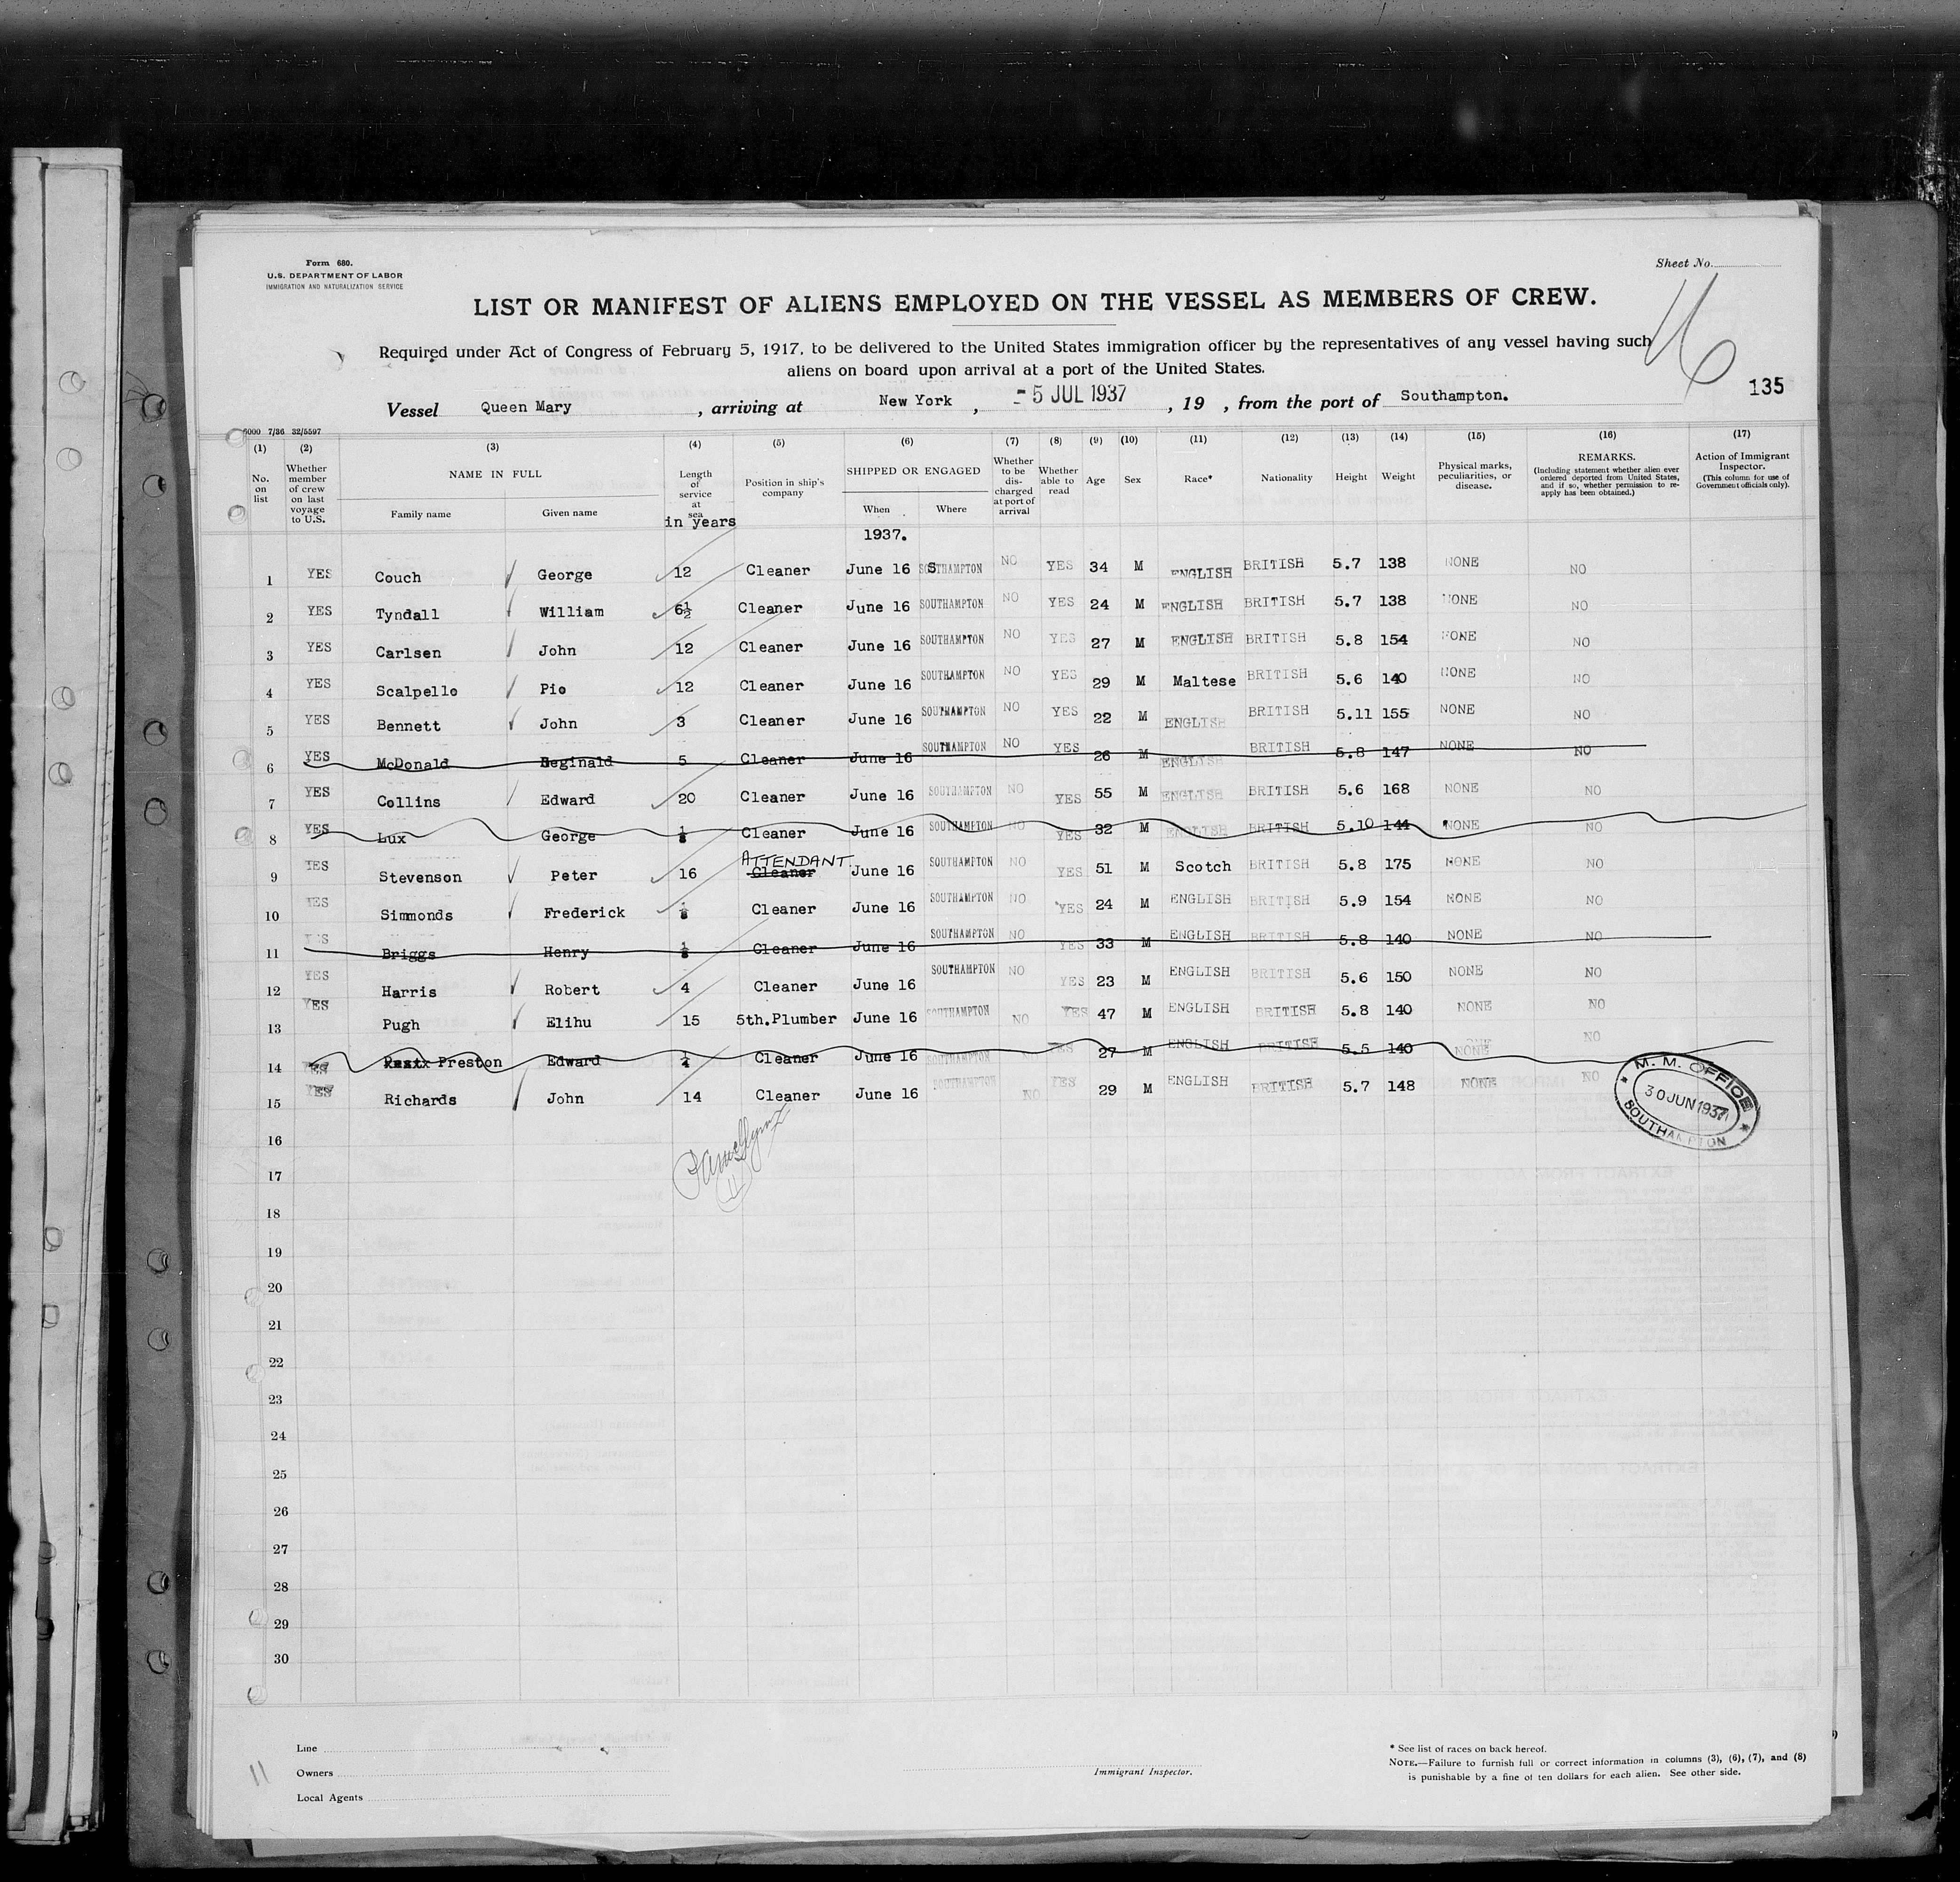 Form 680.
U.S. DEPARTMENT OF LABOR
IMMIGRATION AND NATURALIZATION SERVICE
Sheet No.
LIST OR MANIFEST OF ALIENS EMPLOYED ON THE VESSEL AS MEMBERS OF CREW.
Required under Act of Congress of February 5, 1917, to be delivered to the United States immigration officer by the representatives of any vessel having such
aliens on board upon arrival at a port of the United States.
135
Vessel Queen Mary , arriving at New York , -5 JUL 1937 , 19 , from the port of Southampton.
6000 7/36 32/5597
(1) (2) (3) (4) (5) (6) (7) (8) (9) (10) (11) (12) (13) (14) (15) (16) (17)
No. on list
Whether member of crew on last voyage to U.S.
NAME IN FULL
Family name Given name
Length of service at sea
in years
Position in ship's company
SHIPPED OR ENGAGED
When Where
1937.
Whether to be discharged at port of arrival
Whether able to read
Age
Sex
Race*
Nationality
Height
Weight
Physical marks, peculiarities, or disease.
REMARKS.
(Including statement whether alien ever ordered deported from United States, and if so, whether permission to re-apply has been obtained.)
Action of Immigrant Inspector.
(This column for use of Government officials only).
1 YES Couch George 12 Cleaner June 16 SOUTHAMPTON NO YES 34 M ENGLISH BRITISH 5.7 138 NONE NO
2 YES Tyndall William 6½ Cleaner June 16 SOUTHAMPTON NO YES 24 M ENGLISH BRITISH 5.7 138 NONE NO
3 YES Carlsen John 12 Cleaner June 16 SOUTHAMPTON NO YES 27 M ENGLISH BRITISH 5.8 154 NONE NO
4 YES Scalpello Pio 12 Cleaner June 16 SOUTHAMPTON NO YES 29 M Maltese BRITISH 5.6 140 NONE NO
5 YES Bennett John 3 Cleaner June 16 SOUTHAMPTON NO YES 22 M ENGLISH BRITISH 5.11 155 NONE NO
6 YES McDonald Reginald 5 Cleaner June 16 SOUTHAMPTON NO YES 26 M ENGLISH BRITISH 5.8 147 NONE NO
7 YES Collins Edward 20 Cleaner June 16 SOUTHAMPTON NO YES 55 M ENGLISH BRITISH 5.6 168 NONE NO
8 YES Lux George Cleaner June 16 SOUTHAMPTON NO YES 32 M ENGLISH BRITISH 5.10 144 NONE NO
9 YES Stevenson Peter 16 ATTENDANT. Cleaner June 16 SOUTHAMPTON NO YES 51 M Scotch BRITISH 5.8 175 NONE NO
10 YES Simmonds Frederick Cleaner June 16 SOUTHAMPTON NO YES 24 M ENGLISH BRITISH 5.9 154 NONE NO
11 YES Briggs Henry Cleaner June 16 SOUTHAMPTON NO YES 33 M ENGLISH BRITISH 5.8 140 NONE NO
12 YES Harris Robert 4 Cleaner June 16 SOUTHAMPTON NO YES 23 M ENGLISH BRITISH 5.6 150 NONE NO
13 YES Pugh Elihu 15 5th.Plumber June 16 SOUTHAMPTON NO YES 47 M ENGLISH BRITISH 5.8 140 NONE NO
14 YES Preston Edward Cleaner June 16 SOUTHAMPTON NO YES 27 M ENGLISH BRITISH 5.5 140 NONE NO
15 YES Richards John 14 Cleaner June 16 SOUTHAMPTON NO YES 29 M ENGLISH BRITISH 5.7 148 NONE NO
M. M. OFFICE
30 JUN 1937
SOUTHAMPTON
16
17
18
19
20
21
22
23
24
25
26
27
28
29
30
11
Line
Owners
Local Agents
Immigrant Inspector.
* See list of races on back hereof.
NOTE.—Failure to furnish full or correct information in columns (3), (6), (7), and (8)
is punishable by a fine of ten dollars for each alien. See other side.